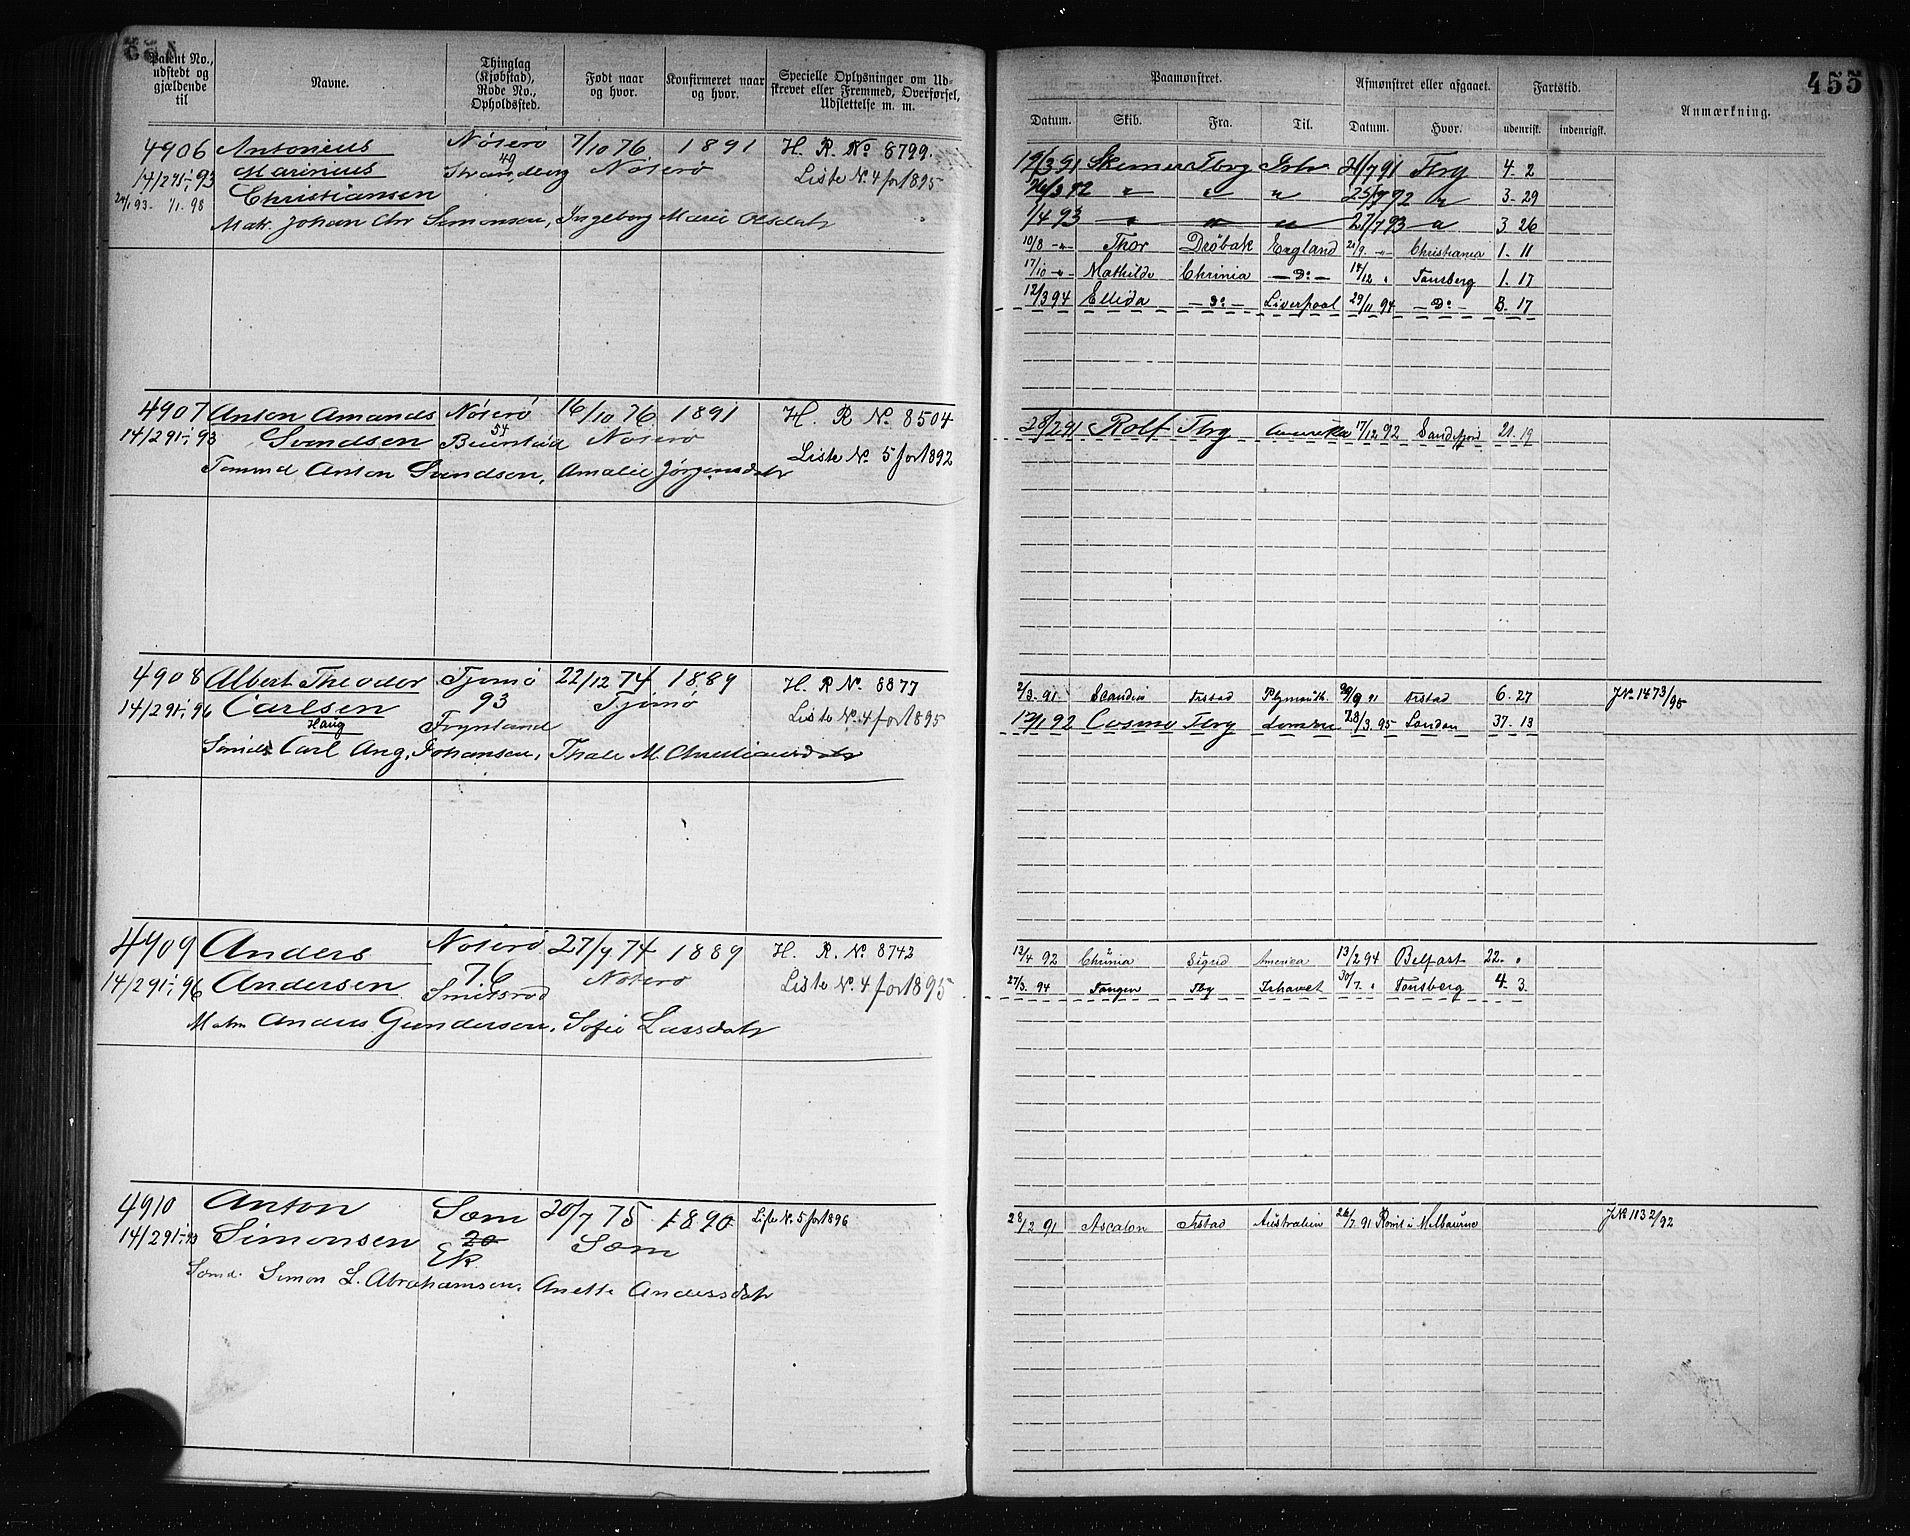 455
Patent No., udstedt og gjældende til
Navne.
Thinglag (Kjøbstad), Rode No., Opholdsted.
Født naar og hvor.
Konfirmeret naar og hvor.
Specielle Oplysninger om Udskrevet eller Fremmed, Overførsel, Udslettelse m. m.
4906 Antonius Nøterø 7/10 76 1891 H. R. No 8799.
14/2 91-93 Marinius 49 Strandberg Nøterø Liste No. 4 for 1895
24/1 93. 1/1. 98 Christiansen
Mat. Johan Chr Simonsen, Ingeborg Marie Olsdatr
4907 Anton Amands Nøterø 16/10 76 1891 H. R No. 8504
14/2 91-93 Sundsen 54 Nøterø Liste No. 5 for 1892
Anton Sundsen, Amalie Jørgensdatr
4908 Albert Theodor Tjømø 22/12 74 1889 H. R No. 8877
14/2 91-96 Carlsen 93 Tjømø Liste No. 4 for 1895
Haug Frynland
Carl Aug. Johansen, Thale M. Christiansdatr
4909 Anders Nøterø 27/9 74 1889 H. R. No. 8742
14/2 91-96 Andersen 76 Smidsrød Nøterø Liste No. 4 for 1895
Matr. Anders Gundersen, Sofie Larsdatr
4910 Anton Sæm 20/7 75 1890 Liste No. 5 for 1896
14/2 91-93 Simonsen 20 Ek Sæm
Sømd. Simon L. Abrahamsen, Anette Andersdatr
Paamønstret.
Afmønstret eller afgaaet.
Fartstid.
Anmærkning.
Datum. Skib. Fra. Til. Datum. Hvor. udenrisk. indenrigsk.
19/3 91 Tbrg Ishv 21/7 91 Tbrg 4 - 2
26/3 92 " " " 25/7 92 " 3 - 29
1/4 93 " " " 27/7 93 " 3 26
10/8 -"- Thor Drøbak England 21/9. -"- Christiania 1. 11
17/10 -"- Mathilde Chrinia -Do- 14/12 " Tønsberg 1. 17
12/3 94 Ellida -Do- Liverpool 29/11 94 -Do- 8. 17
28/2 91 Rolf Tbrg Amerika 17/12 92 Sandefjord 21. 19
2/3. 91 Scandia Frstad Plymouth 29/9 91 Frstad 6. 27 J.No. 1473/95
12/1 92 Cosmo Tbrg London 28/3. 95 London 37. 13
13/4 92 Chrinia Sigrid America 13/2 94 Belfast 22. "
27/3. 94 Tangen Tbg Ishavet 30/7. " Tønsberg 4. 3.
28/12 91 Ascalon Frstad Australien 26/7. 91 Rømt i Melbourne J.No. 1132/92